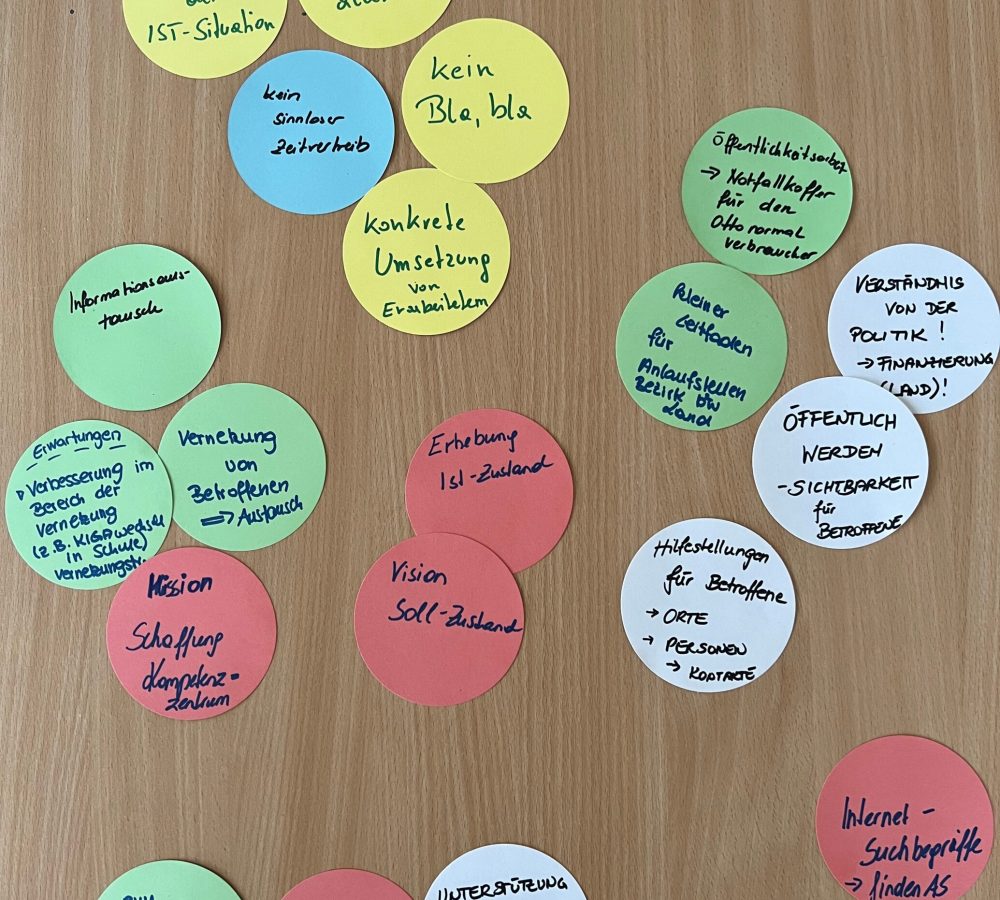 IST-Situation
kein
sinnloser
Zeitvertreib
kein
Bla, bla
konkrete
Umsetzung
von
Erarbeitetem
Öffentlichkeitsarbeit
→ Notfallkoffer
für den
Otto normal
verbraucher
kleiner
Leitfaden
für
Anlaufstellen
Bezirk bzw
Land
VERSTÄNDNIS
VON DER
POLITIK!
→ FINANZIERUNG
(LAND)!
ÖFFENTLICH
WERDEN
- SICHTBARKEIT
für
BETROFFENE
Informationsaus-
tausch
Erwartungen
Verbesserung im
Bereich der
Vernetzung
(z.B. KIGA wechsel
in Schule)
Vernetzung
von
Betroffenen
⇒ Austausch
Mission
Schaffung
Kompetenz-
zentrum
Erhebung
Ist-Zustand
Vision
Soll-Zustand
Hilfestellungen
für Betroffene
→ ORTE
→ PERSONEN
→ KONTAKTE
Internet-
Suchbegriffe
→ finden AS
UNTERSTÜTZUNG